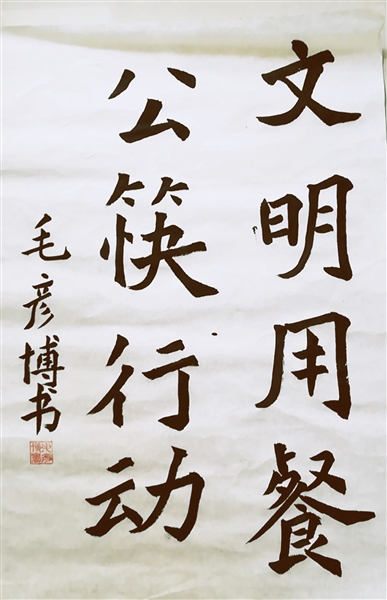 文明用餐
公筷行动
毛彦博书